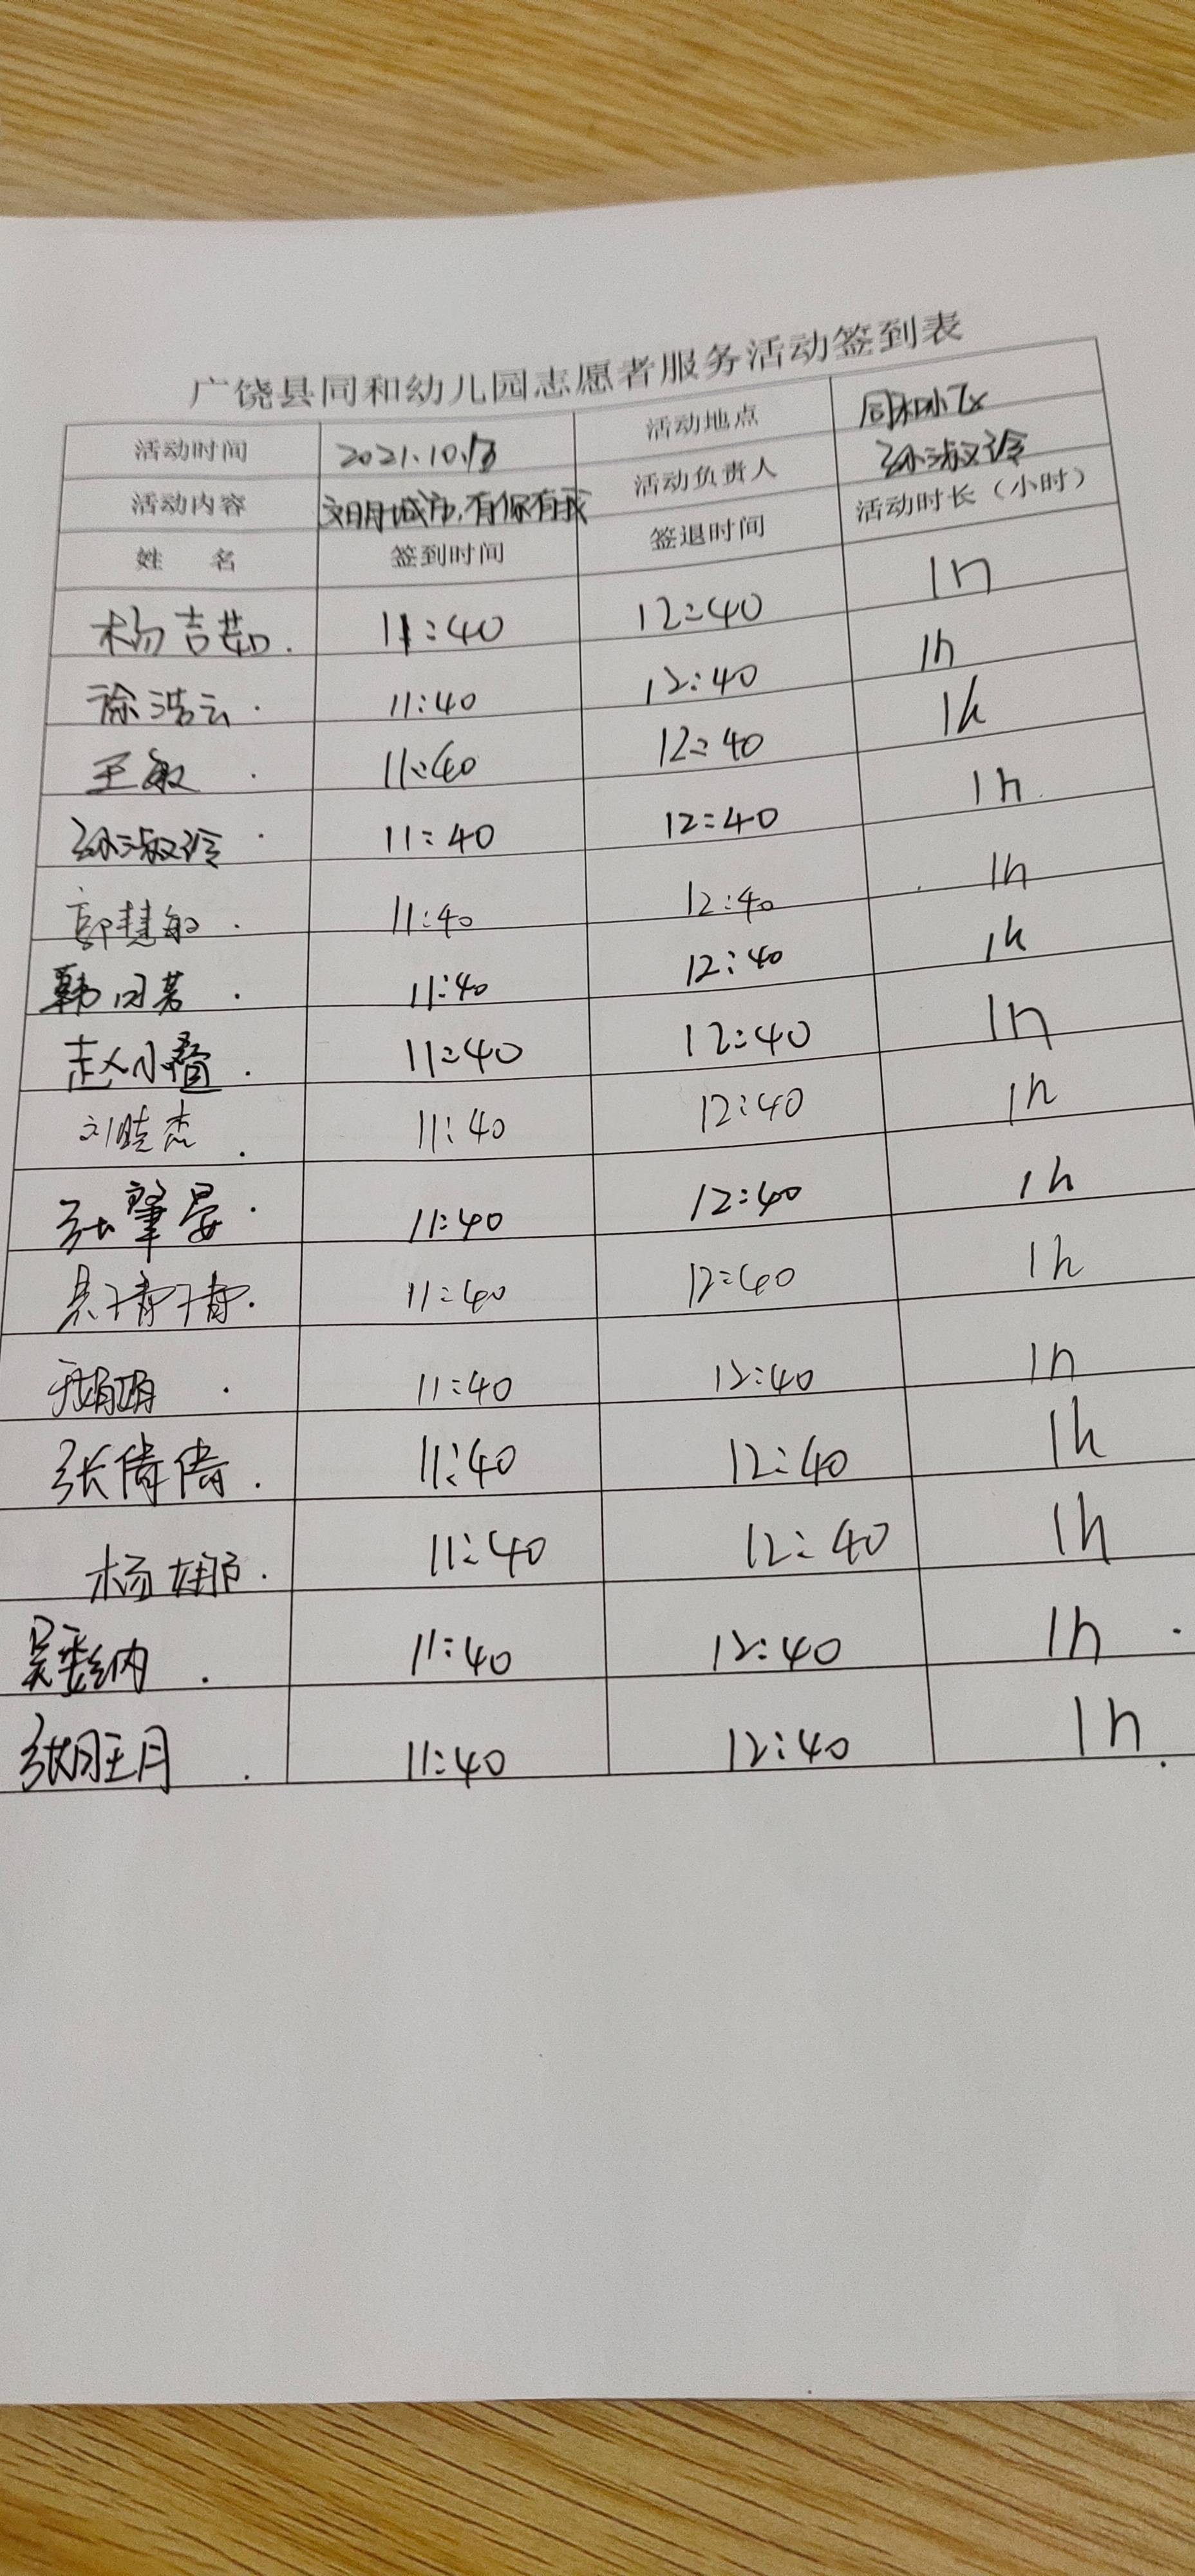 广饶县同和幼儿园志愿者服务活动签到表
活动时间 2021.10. 活动地点 同和小区
活动内容 文明城市,有你有我 活动负责人 孙淑玲
姓 名 签到时间 签退时间 活动时长(小时)
杨吉茹. 11:40 12:40 1h
徐浩云. 11:40 12:40 1h
王敏. 11:40 12:40 1h
孙淑玲. 11:40 12:40 1h
郭慧敏. 11:40 12:40 1h
韩日芳. 11:40 12:40 1h
赵小叠. 11:40 12:40 1h
刘晓杰. 11:40 12:40 1h
张肇晏. 11:40 12:40 1h
吴倩倩. 11:40 12:40 1h
11:40 12:40 1h
张倩倩. 11:40 12:40 1h
杨娜. 11:40 12:40 1h
吴彩纳. 11:40 12:40 1h
11:40 12:40 1h